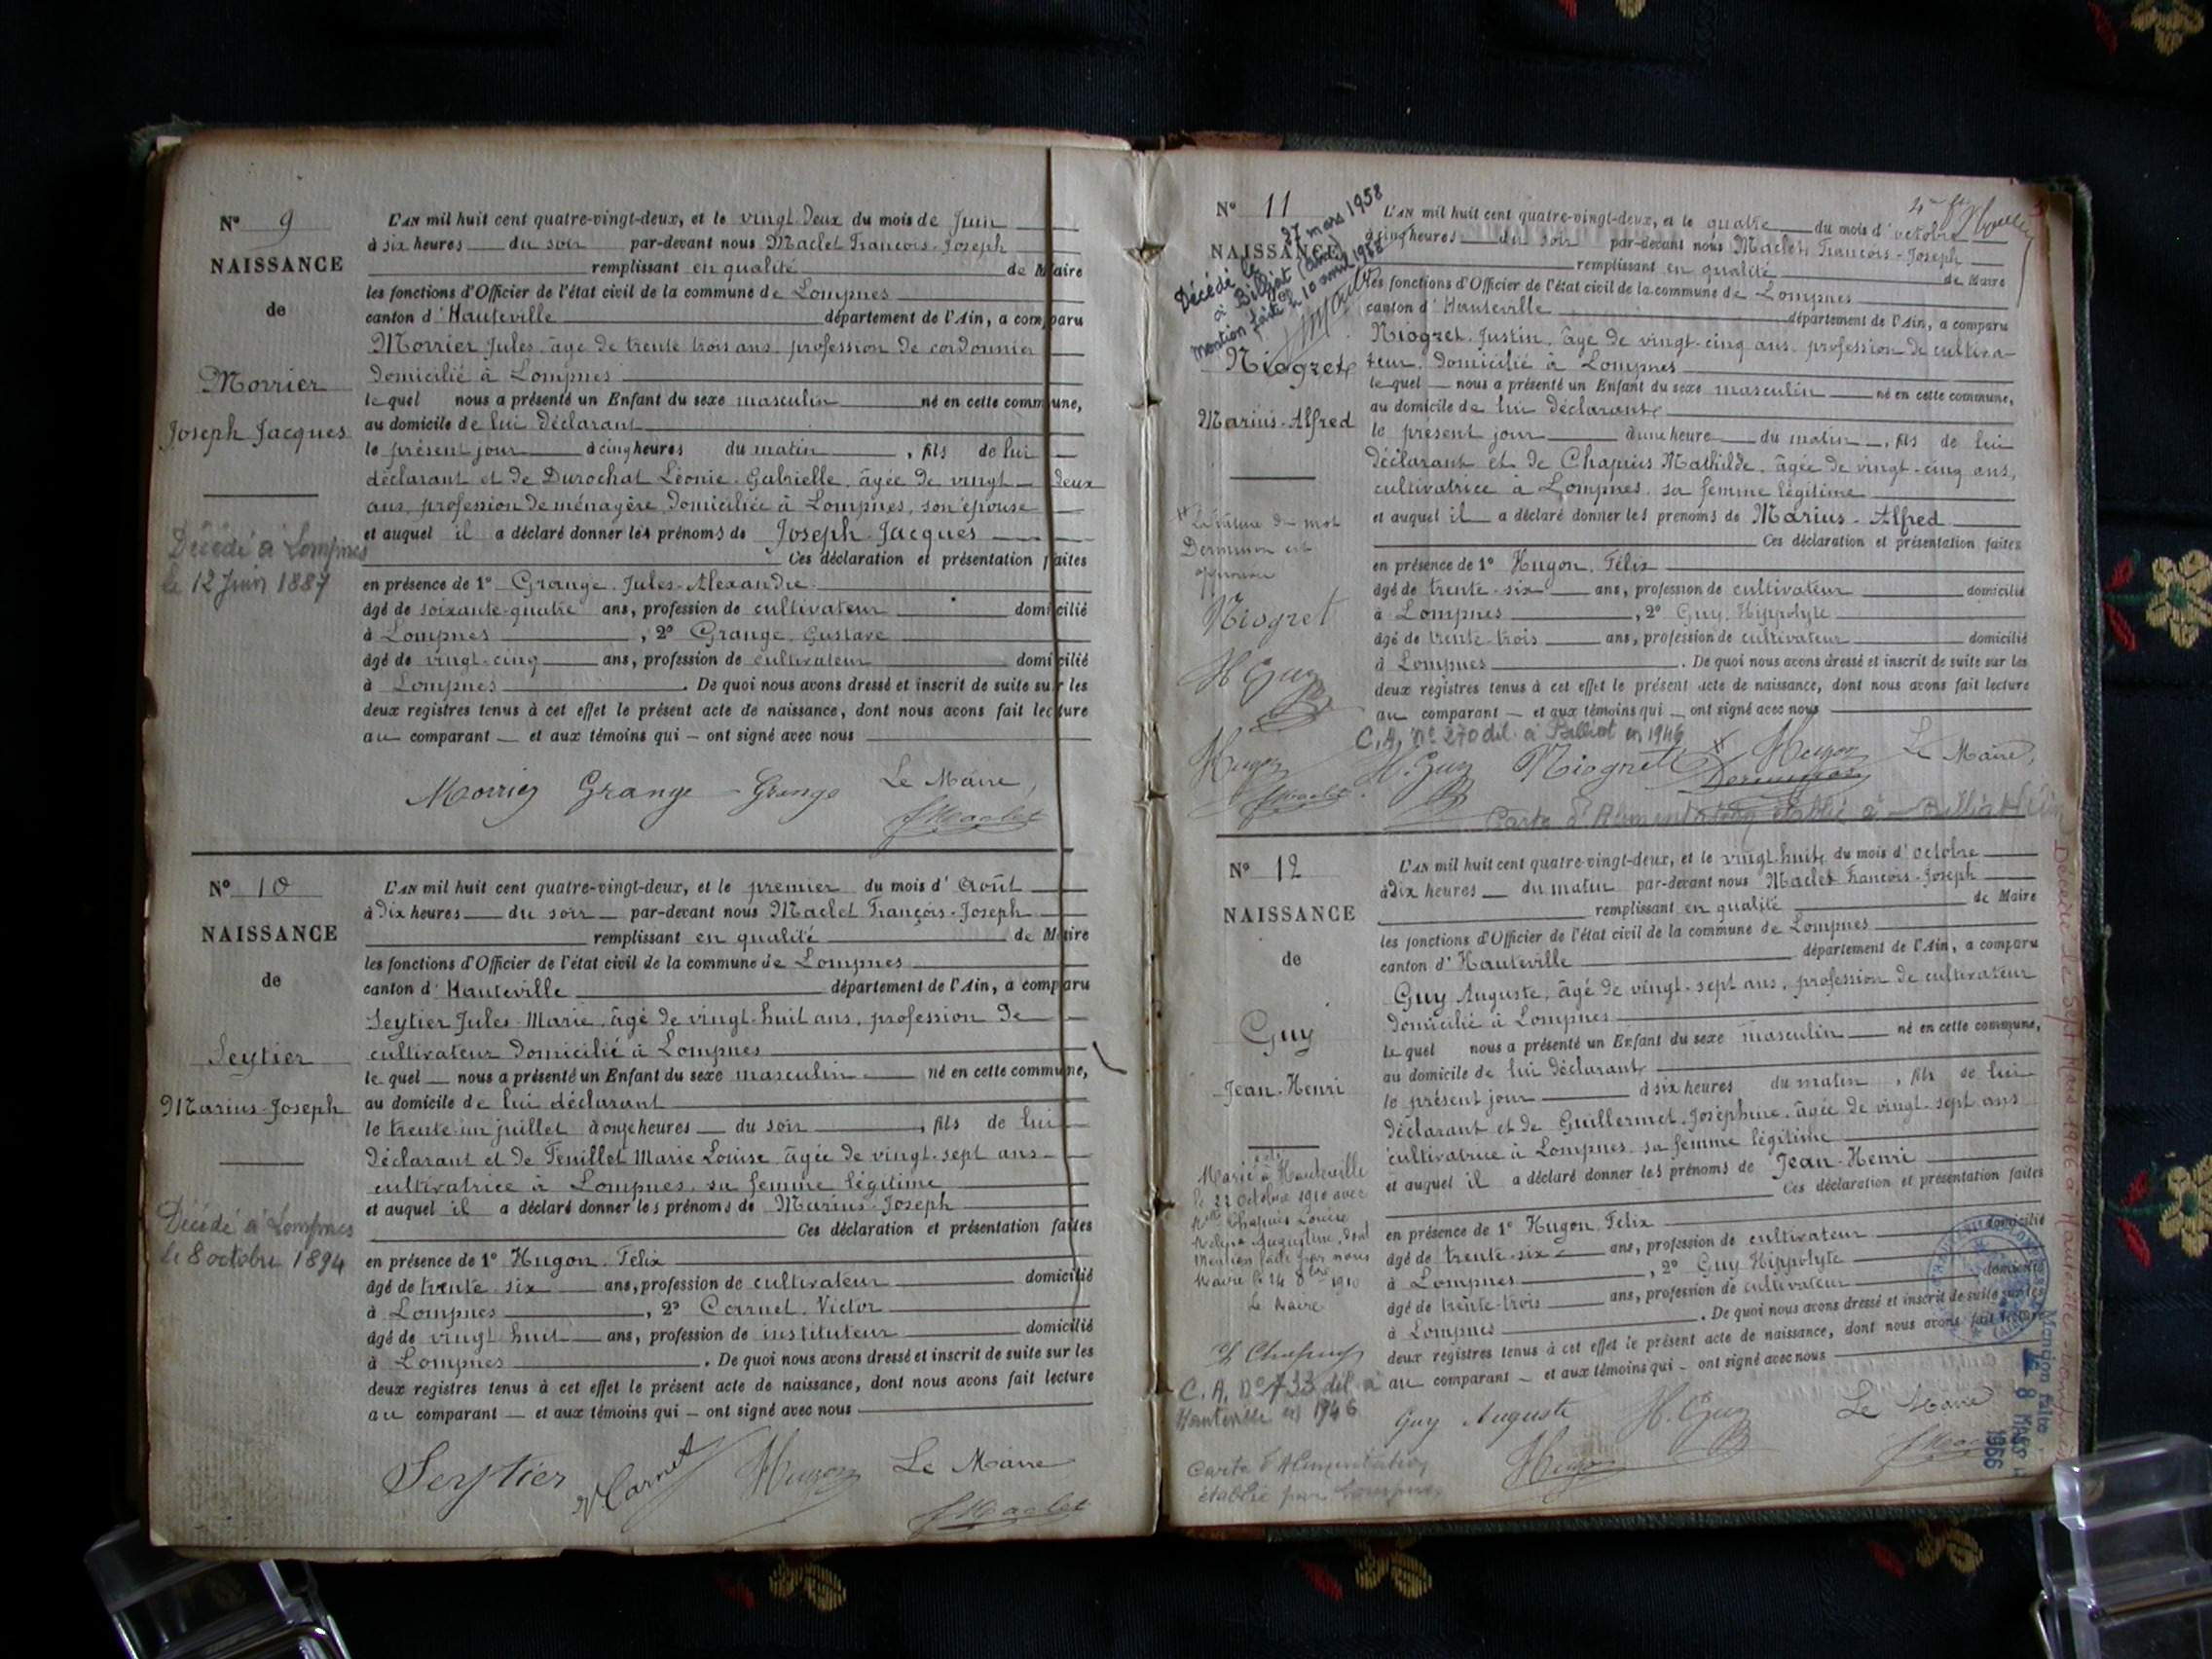 N° 9
NAISSANCE
de
Morrier
Joseph Jacques
Décédé à Lompnes
le 12 Juin 1887
L'AN mil huit cent quatre-vingt-deux, et le vingt deux du mois de Juin
à six heures du soir par-devant nous Maclet François-Joseph
remplissant en qualité de Maire
les fonctions d'Officier de l'état civil de la commune de Lompnes
canton d'Hauteville département de l'Ain, a comparu
Morrier Jules, âgé de trente trois ans, profession de cordonnier
domicilié à Lompnes
lequel nous a présenté un Enfant du sexe masculin né en cette commune,
au domicile de lui déclarant
le présent jour à cinq heures du matin, fils de lui
déclarant et de Durochat Léonie-Gabrielle, âgée de vingt-deux
ans, profession de ménagère, domiciliée à Lompnes, son épouse
et auquel il a déclaré donner les prénoms de Joseph Jacques
Ces déclaration et présentation faites
en présence de 1° Grange Jules-Alexandre
âgé de soixante-quatre ans, profession de cultivateur domicilié
à Lompnes, 2° Grange Gustave
âgé de vingt-cinq ans, profession de cultivateur domicilié
à Lompnes. De quoi nous avons dressé et inscrit de suite sur les
deux registres tenus à cet effet le présent acte de naissance, dont nous avons fait lecture
au comparant — et aux témoins qui — ont signé avec nous
Morrier Grange Grange Le Maire,
F Maclet
N° 10
NAISSANCE
de
Seytier
Marius-Joseph
Décédé à Lompnes
le 8 octobre 1894
L'AN mil huit cent quatre-vingt-deux, et le premier du mois d'Août
à dix heures du soir par-devant nous Maclet François-Joseph
remplissant en qualité de Maire
les fonctions d'Officier de l'état civil de la commune de Lompnes
canton d'Hauteville département de l'Ain, a comparu
Seytier Jules-Marie, âgé de vingt-huit ans, profession de
cultivateur domicilié à Lompnes
lequel — nous a présenté un Enfant du sexe masculin né en cette commune,
au domicile de lui déclarant
le trente-un juillet à onze heures du soir, fils de lui
déclarant et de Feuillet Marie Louise, âgée de vingt-sept ans
cultivatrice à Lompnes, sa femme légitime
et auquel il a déclaré donner les prénoms de Marius-Joseph
Ces déclaration et présentation faites
en présence de 1° Hugon Félix
âgé de trente-six ans, profession de cultivateur domicilié
à Lompnes, 2° Carnet Victor
âgé de vingt huit ans, profession de instituteur domicilié
à Lompnes. De quoi nous avons dressé et inscrit de suite sur les
deux registres tenus à cet effet le présent acte de naissance, dont nous avons fait lecture
au comparant — et aux témoins qui — ont signé avec nous
Seytier V Carnet Hugon Le Maire
F Maclet
N° 11
NAISSANCE
Décédé le 27 mars 1958
à Béligat (Ain)
Mention faite le 10 avril 1958
Niogret
Marius-Alfred
Niogret
H Guy
Hugon
F Maclet
L'AN mil huit cent quatre-vingt-deux, et le quatre du mois d'octobre
à cinq heures du soir par-devant nous Maclet François-Joseph
remplissant en qualité de Maire
les fonctions d'Officier de l'état civil de la commune de Lompnes
canton d'Hauteville département de l'Ain, a comparu
Niogret Justin, âgé de vingt-cinq ans, profession de cultiva-
teur, domicilié à Lompnes
lequel — nous a présenté un Enfant du sexe masculin né en cette commune,
au domicile de lui déclarant
le présent jour à une heure du matin, fils de lui
déclarant et de Chapuis Mathilde, âgée de vingt-cinq ans,
cultivatrice à Lompnes, sa femme légitime
et auquel il a déclaré donner les prénoms de Marius-Alfred
Ces déclaration et présentation faites
en présence de 1° Hugon Félix
âgé de trente-six ans, profession de cultivateur domicilié
à Lompnes, 2° Guy Hippolyte
âgé de trente-trois ans, profession de cultivateur domicilié
à Lompnes. De quoi nous avons dressé et inscrit de suite sur les
deux registres tenus à cet effet le présent acte de naissance, dont nous avons fait lecture
au comparant — et aux témoins qui — ont signé avec nous
C.A. N° 270 dél. à Billiat en 1946
H. Guy Niogret Hugon Le Maire,
Carte d'Alimentation établie à Billiat
N° 12
NAISSANCE
de
Guy
Jean-Henri
Marié à Hauteville
le 22 Octobre 1910 avec
Chapuis Louise
Augustine, dont
Mention faite par nous
Maire le 24 8bre 1910
Le Maire
C.A. N° 733 dél. à
Hauteville en 1946
Carte d'Alimentation
établie par Lompnes
L'AN mil huit cent quatre-vingt-deux, et le vingt-huit du mois d'octobre
à dix heures du matin par-devant nous Maclet François-Joseph
remplissant en qualité de Maire
les fonctions d'Officier de l'état civil de la commune de Lompnes
canton d'Hauteville département de l'Ain, a comparu
Guy Auguste, âgé de vingt-sept ans, profession de cultivateur
domicilié à Lompnes
lequel nous a présenté un Enfant du sexe masculin né en cette commune,
au domicile de lui déclarant
le présent jour à six heures du matin, fils de lui
déclarant et de Guillermet Joséphine, âgée de vingt-sept ans
cultivatrice à Lompnes, sa femme légitime
et auquel il a déclaré donner les prénoms de Jean-Henri
Ces déclaration et présentation faites
en présence de 1° Hugon Félix domicilié
âgé de trente-six ans, profession de cultivateur
à Lompnes, 2° Guy Hippolyte domicilié
âgé de trente-trois ans, profession de cultivateur
à Lompnes. De quoi nous avons dressé et inscrit de suite sur les
deux registres tenus à cet effet le présent acte de naissance, dont nous avons fait lecture
au comparant — et aux témoins qui — ont signé avec nous
Guy Auguste H. Guy Le Maire
Hugon
Décédé le sept Mars 1966 à Hauteville-Lompnes
Mention faite
8 Mars
1966